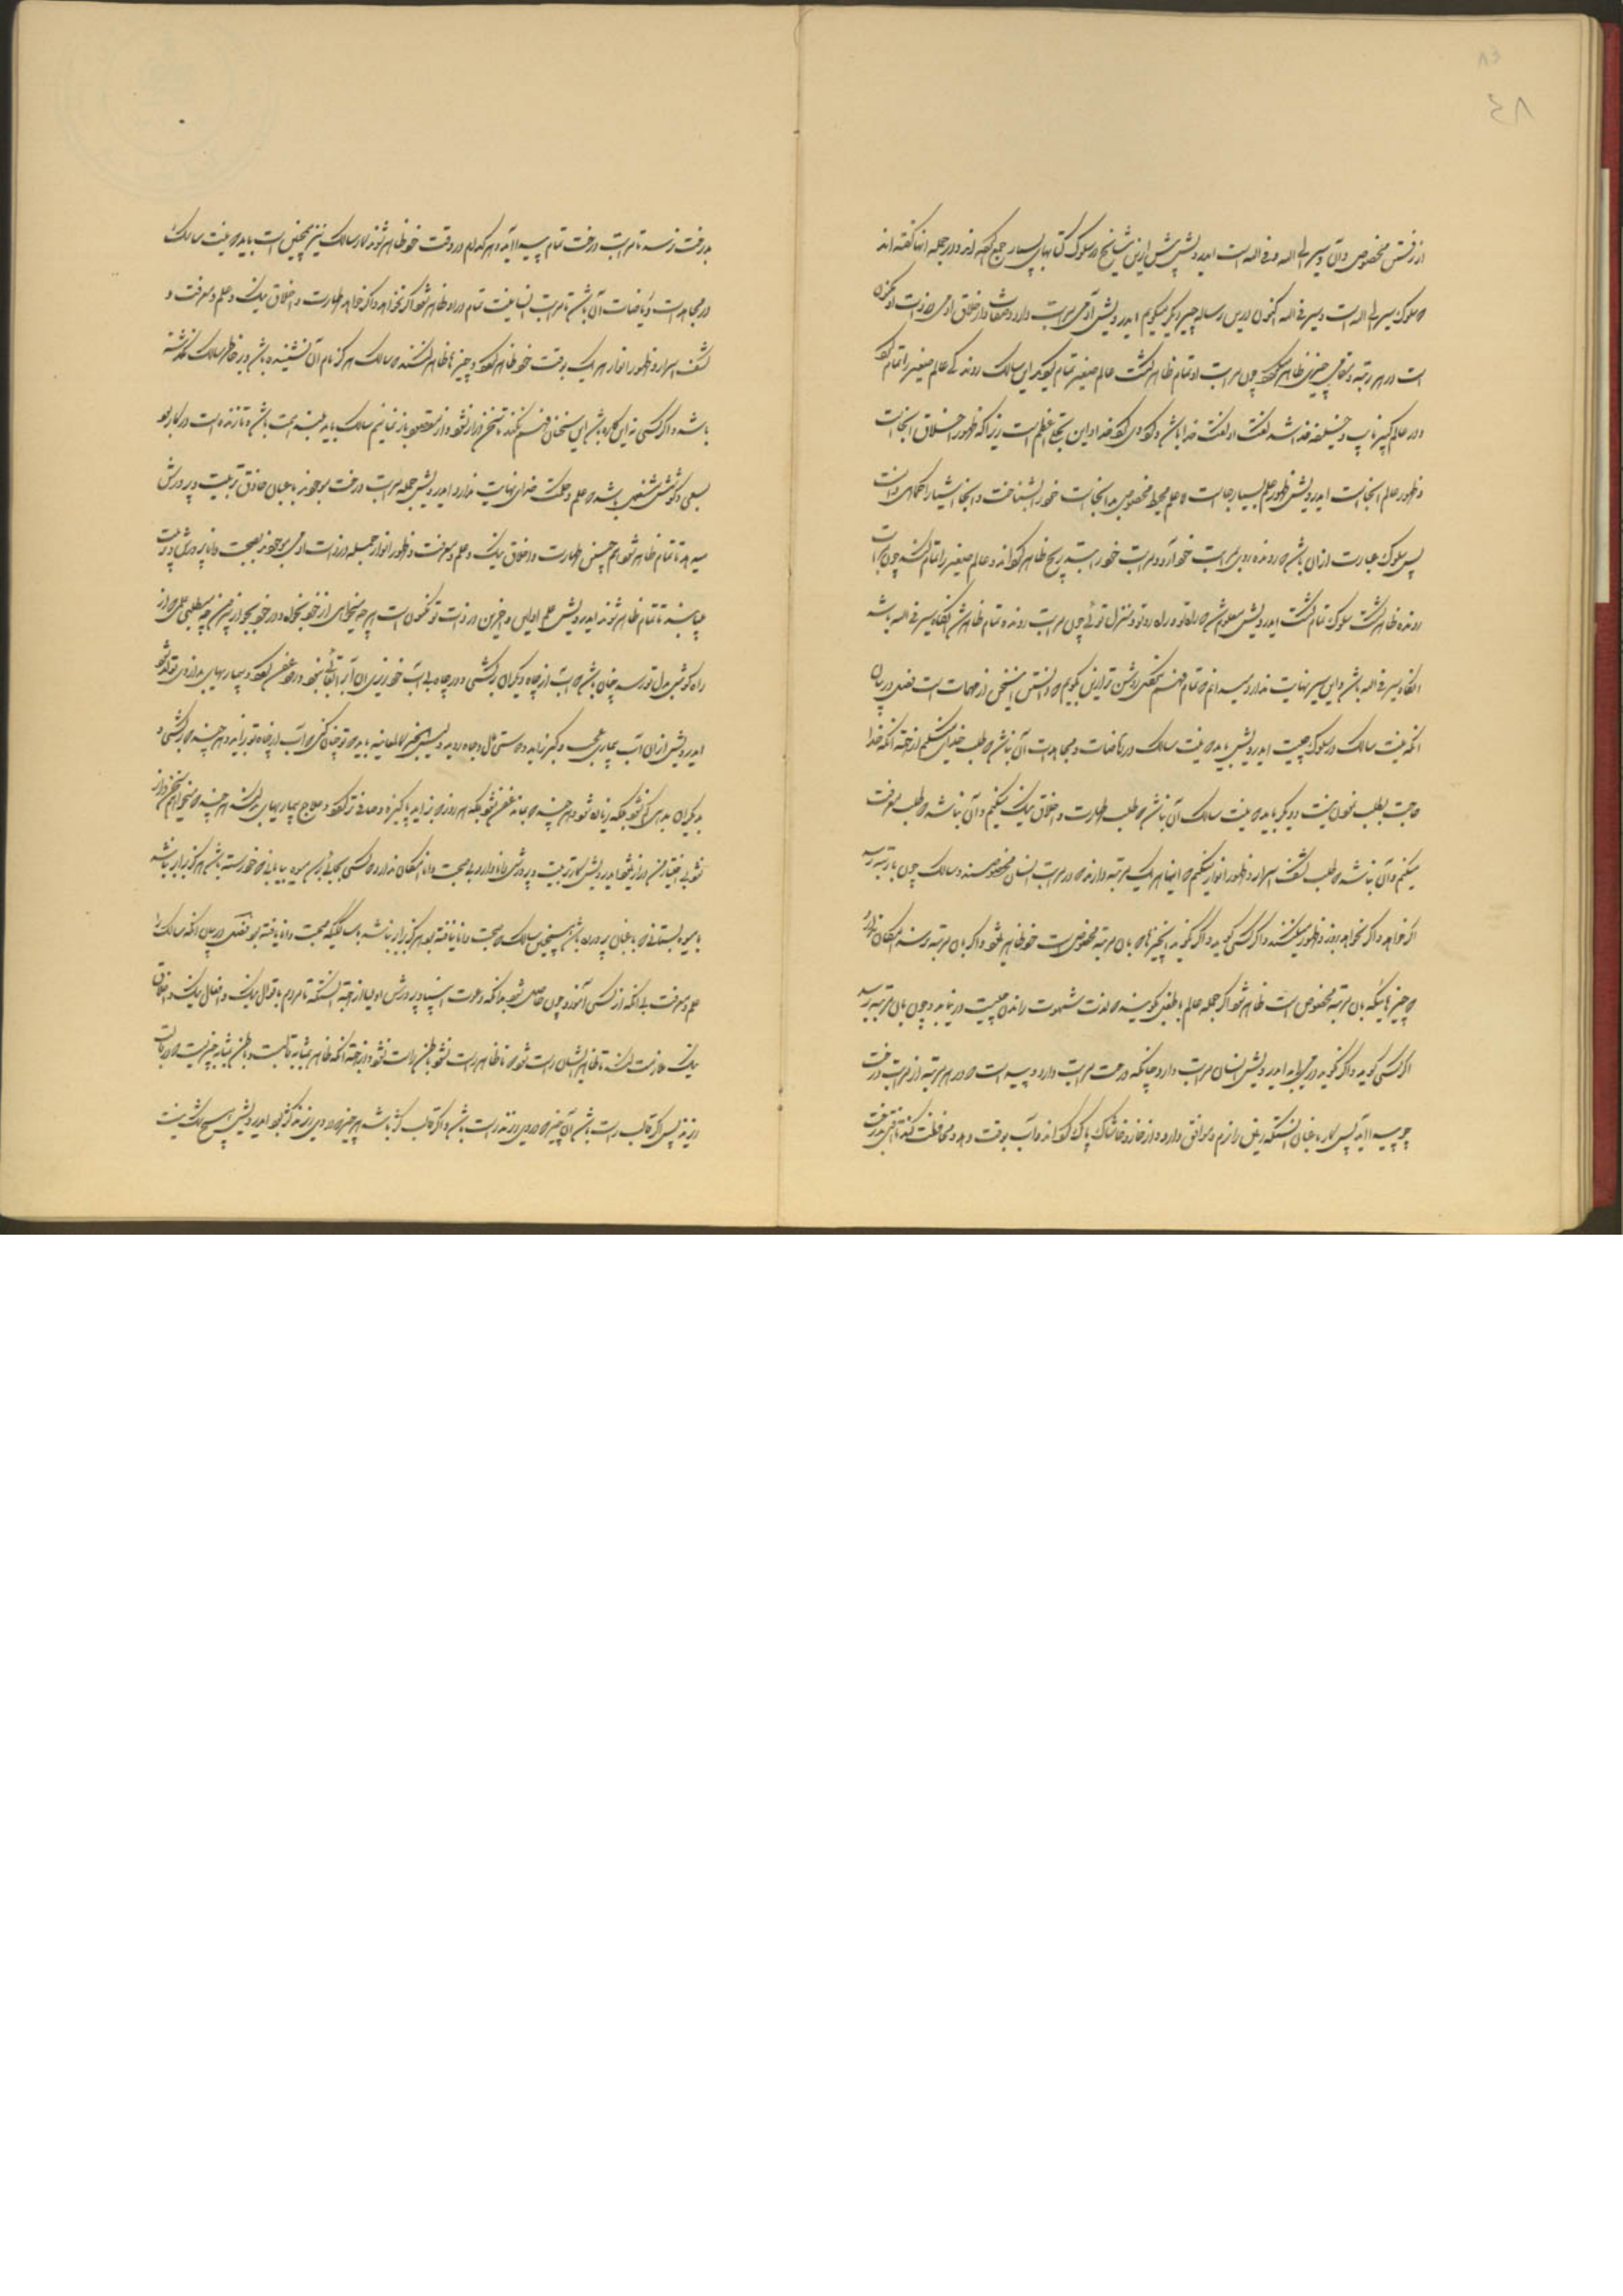 ۸۴
از رفتن مخصوص و آن سیر الی الله و فی الله است ایدرویش پیش ازین مشایخ در سلوک کتابهای بسیار جمع کرده اند و در جمله آنها گفته اند
که سلوک سیر الی الله است و سیر فی الله اکنون درین رساله چیز دیگر میگویم ایدرویش آدمی مراتب دارد و صفات و اخلاق آدمی در ذات او مکنون
است در هر مرتبه و مقامی چیزی ظاهر میگردد چون مراتب او تمام ظاهر گشت عالم صغیر تمام گردد ای سالک رونده که عالم صغیر را تمام کرد
و در عالم کبیر نایب و خلیفه خدا شد گفت او گفت خدا باشد و کرده وی کرده خدا و این تجلی اعظم است زیرا که ظهور اخلاق اینجاست
و ظهور عالم اینجاست ایدرویش ظهور علم بسیار جاست اما علم محیط مخصوص بدینجاست خود را بشناخت و اینجا اشیا را کماهی دانست
پس سلوک عبارت از ان باشد که رونده روی بمراتب خود آرد و مراتب خود را بتدریج ظاهر گرداند و عالم صغیر را تمام کند چون مراتب
رونده ظاهر گشت سلوک تمام گشت ایدرویش معلوم شد که راه تو و راه رو تو و منزل توئی چون مراتب رونده تمام ظاهر شد آنگاه سیر فی الله باشد
آنگاه سیر فی الله باشد و این سیر نهایت ندارد میدانم که تمام فهم نکردی روشن تر ازین بگویم که دانستن این سخن از مهمات است فصل در بیان
آنکه نیت سالک در سلوک چیست ایدرویش باید که نیت سالک در ریاضات و مجاهدات آن نباشد که طلب خدای میکنم از جهت آنکه خدا را
حاجت بطلب نمودن نیست و دیگر باید که نیت سالک آن نباشد که طلب طهارت و اخلاق نیک میکنم و آن نباشد که طلب معرفت
میکنم و آن نباشد که طلب کشف اسرار و ظهور انوار میکنم که اینها هر یک مرتبه دارند که در مراتب انسان مخصوصند و سالک چون بآن مرتبه رسد
اگر خواهد و اگر نخواهد روزی ظهور میکنند و اگر کسی گوید و اگر نگوید آن چیزها که بآن مرتبه مخصوص است خود ظاهر شود و اگر بآن مرتبه نرسد امکان ندارد
که چیزهائیکه بآن مرتبه مخصوص است ظاهر شود اگر جمله عالم با طفل گویند که لذت شهوت راندن چیست در نیابد و چون بآن مرتبه رسد
اگر کسی گوید و اگر نگوید در می یابد ایدرویش انسان مراتب دارد چنانکه درخت مراتب دارد و پیداست که در هر مرتبه از مراتب درخت
چه پیدا آید پس کار باغبان آنستکه زمین را نرم و موافق دارد و از خار و خاشاک پاک گرداند و آب بوقت دهد و محافظت کند تا آفتی بدرخت
بدرخت نرسد تا مراتب درخت تمام پیدا آید و هر کدام در وقت خود ظاهر شوند کار سالک نیز همچنین است باید که نیت سالک
در مجاهدات و ریاضات آن باشد تا مراتب انسانیت تمام در او ظاهر شود اگر نخواهد و اگر خواهد طهارت و اخلاق نیک و علم و معرفت و
کشف اسرار و ظهور انوار هر یک بوقت خود ظاهر گردد و چیزها ظاهر کنند که سالک هرگز نام آن نشنیده باشد و در خاطر سالک نگذشته
باشد و اگر کسی نه این کاره باشد این سخنان فهم نکند تا سخن دراز نشود و از مقصود باز نمانیم سالک باید بلند همت باشد و تا زنده است در کار بود
بسعی و کوشش مشغول باشد که علم و حکمت خدای نهایت ندارد ایدرویش جمله مراتب درخت موجودند باغبان حاذق تربیت و پرورش
میدهد تا تمام ظاهر شود همچنین طهارت و اخلاق نیک و علم و معرفت و ظهور انوار جمله در ذات آدمی موجودند بصحبت دانا و پرورش و تربیت
میباید تا تمام ظاهر شوند ایدرویش علم اولین و آخرین در ذات تو مکنون است هر چه میخواهی از خود بخواه و در خود بجو از بیرون چه میطلبی علمی که از
راه گوش بدل تو رسد چنان باشد که آب از چاه دیگران برکشی و در چاه بی آب خود ریزی آن آب را بقائی نبود و زود عفن گردد و بیماریهای بد از وی تولد شود
ایدرویش از آن آب بیماری عجب و کبر زاید و دوستی مال و جاه روید باید که تو چنان کنی که آب از چاه تو زاید و هر چند که برکشی و
بدیگران بدهی کم نشود بلکه زیاده شود و هر چند که بماند عفن نشود بلکه هر روز که برآید پاکیزه و صافی تر گردد و علاج بیماریهای بد کند هر چند میخواهم سخن دراز
نشود بی اختیار من دراز میشود ایدرویش کار تربیت و پرورش دانا دارد بی صحبت دانا امکان ندارد که کسی بجائی برسد میوه بیابانی که خود رسته باشد هرگز برابر نباشد
با میوه بستانی که باغبان پرورده باشد همچنین سالک که صحبت دانا نیافته بود هرگز برابر نباشد با سالکی که صحبت دانا یافته بود فصل در بیان آنکه سالک را
علم و معرفت بی آنکه از کسی آموزد چون حاصل شود بدانکه دعوت انبیا و پرورش اولیا از جهت آنستکه تا مردم باقوال نیک و افعال نیک و اخلاق
نیک ملازمت کنند تا ظاهر ایشان راست شود که تا ظاهر راست نشود باطن راست نشود از جهت آنکه ظاهر بمثابه قالبست و باطن بمثابه چیزیست که در قالب
ریزند پس اگر قالب راست باشد آن چیز که در وی ریزند راست باشد و اگر قالب کژ باشد هر چیز که در وی ریزند کژ بود ایدرویش هیچ شک نیست